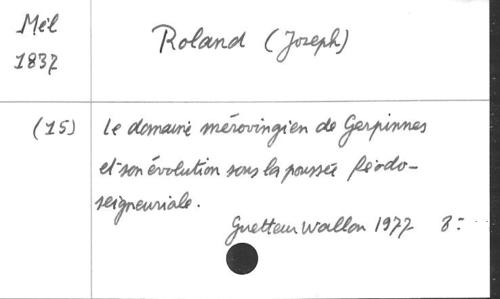 Mél
1837
Roland (Joseph)
(15)
Le domaine mérovingien de Gerpinnes
et son évolution sous la poussée féodo-
seigneuriale.
Guetteur Wallon 1977 8=